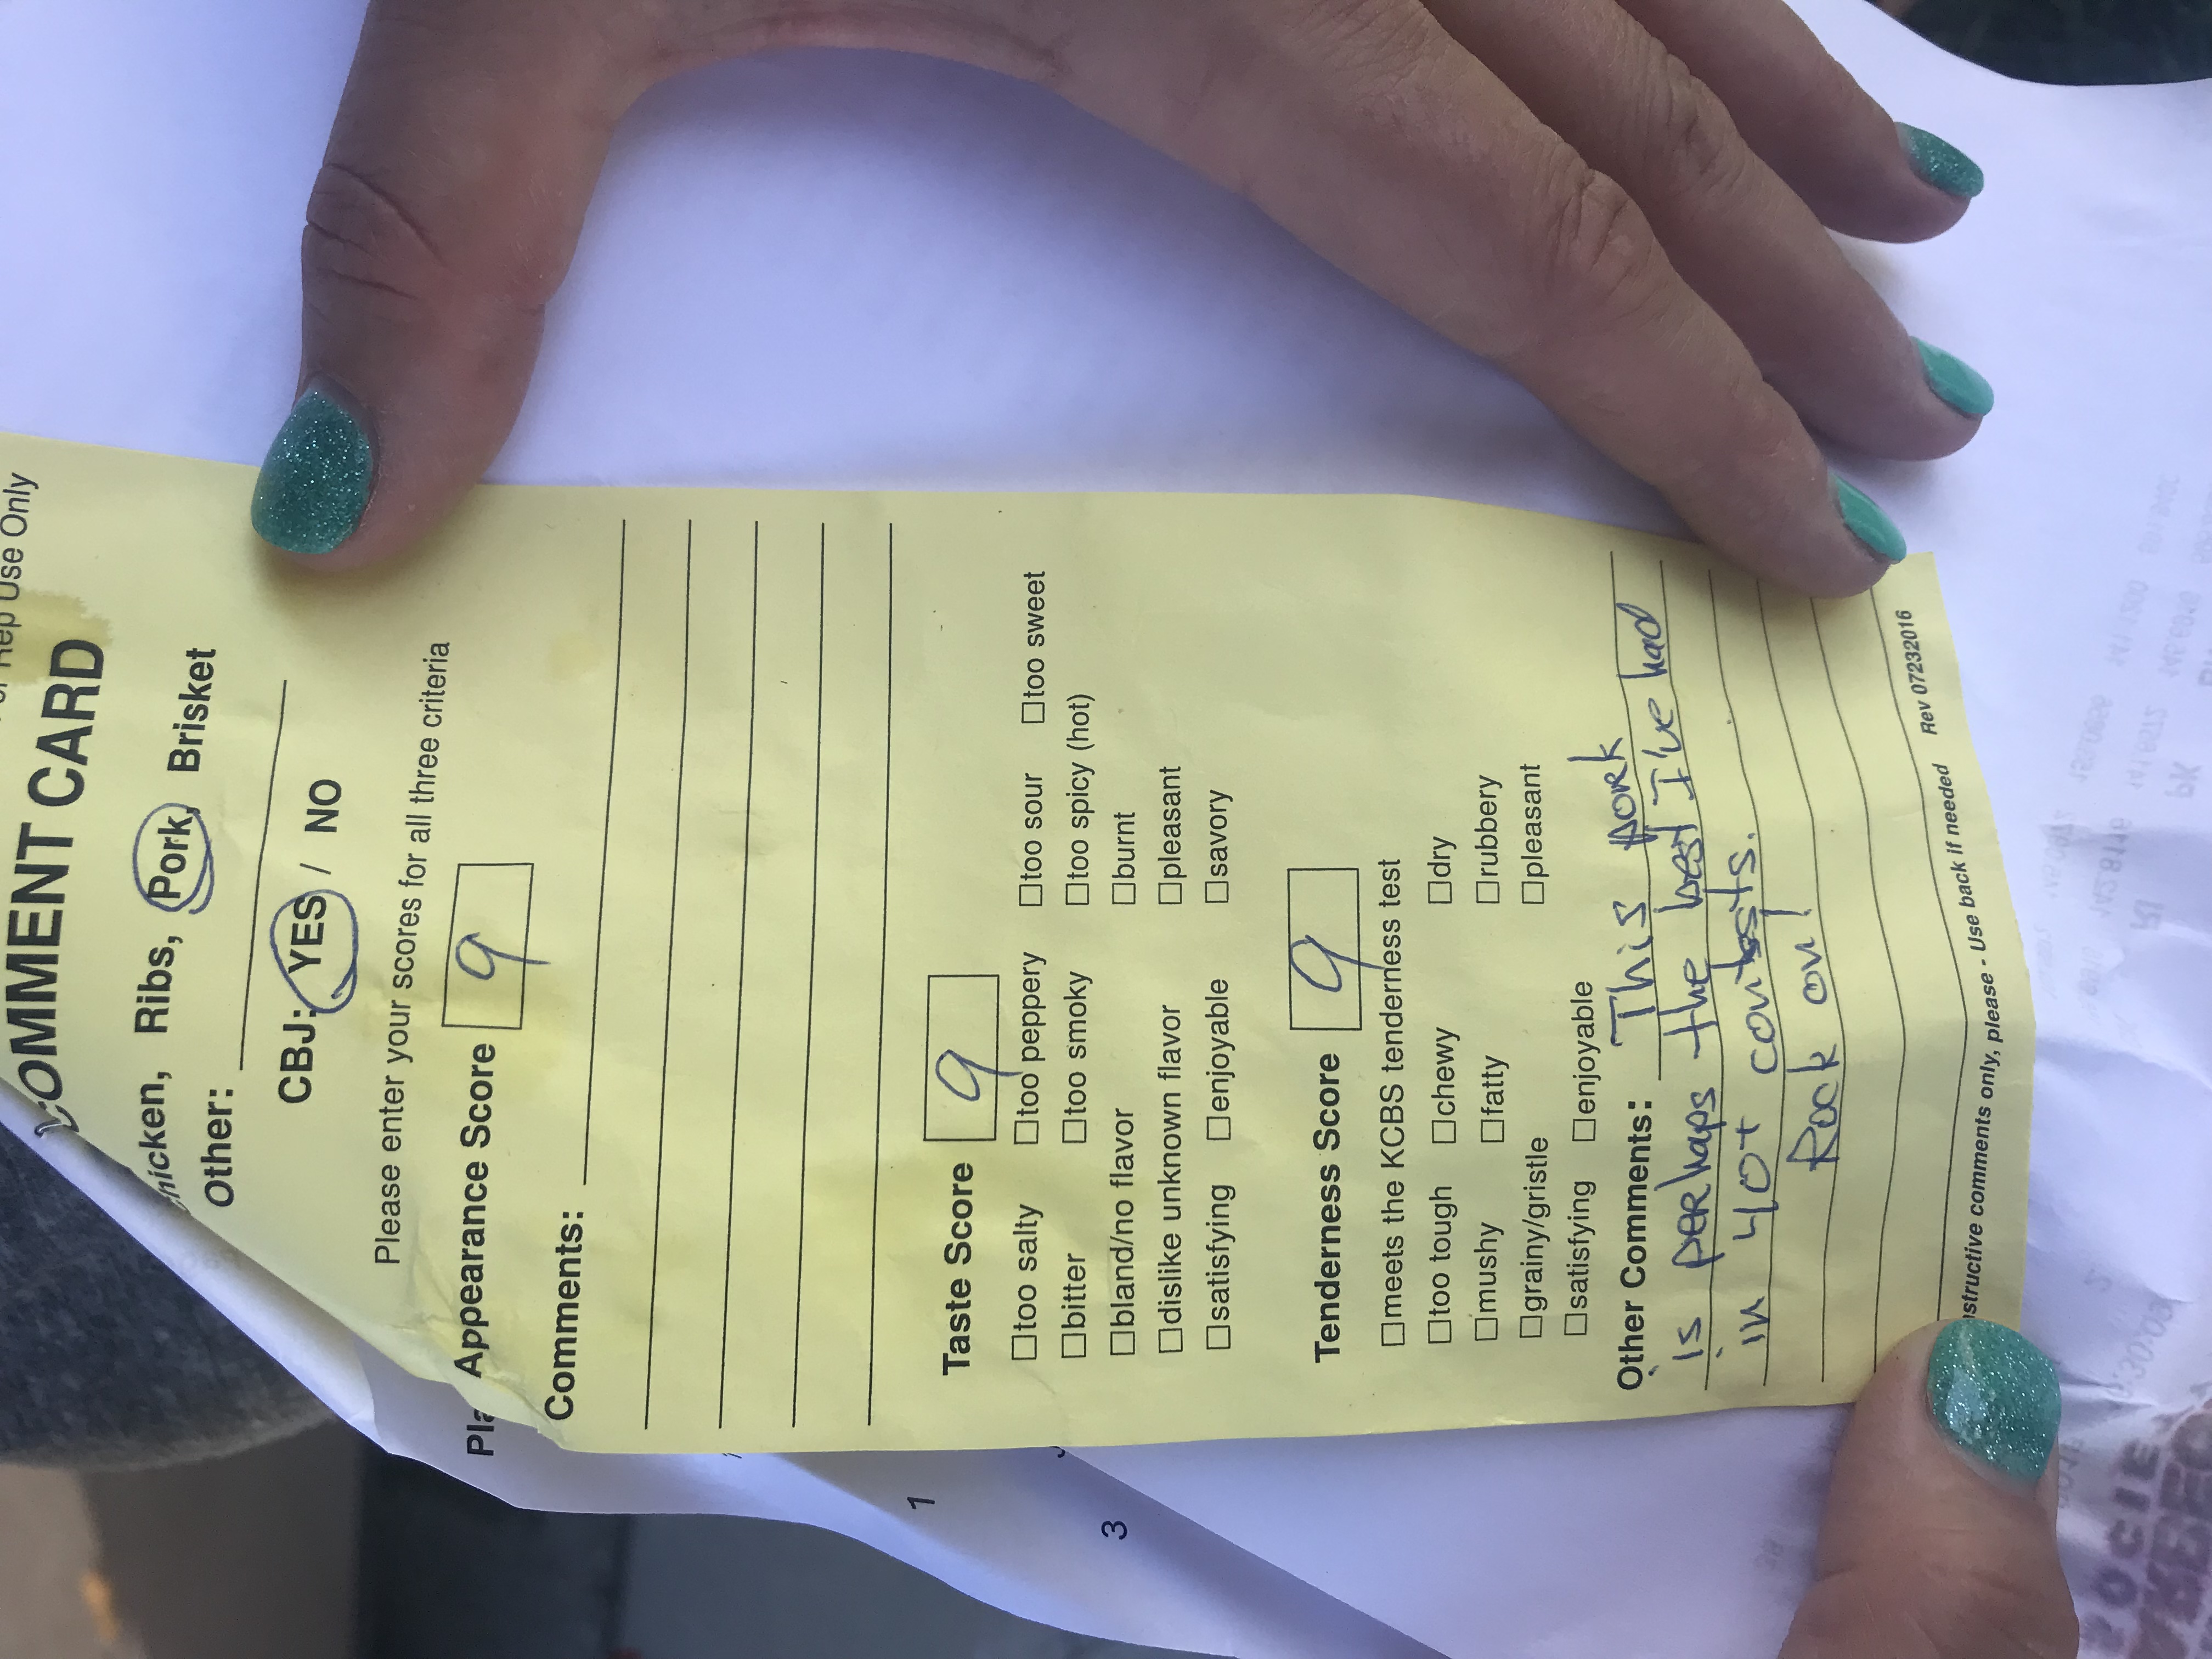 Rep Use Only
COMMENT CARD
hicken, Ribs, Pork, Brisket
Other:
CBJ: YES / NO
Please enter your scores for all three criteria
Appearance Score 9
Comments:
Taste Score 9
too salty too peppery too sour too sweet
bitter too smoky too spicy (hot)
bland/no flavor burnt
dislike unknown flavor pleasant
satisfying enjoyable savory
Tenderness Score 9
meets the KCBS tenderness test
too tough chewy dry
mushy fatty rubbery
grainy/gristle pleasant
satisfying enjoyable
Other Comments: This pork
is perhaps the best I've had
in 40+ contests.
Rock on!
nstructive comments only, please - Use back if needed Rev 07232016
Pla
1
3